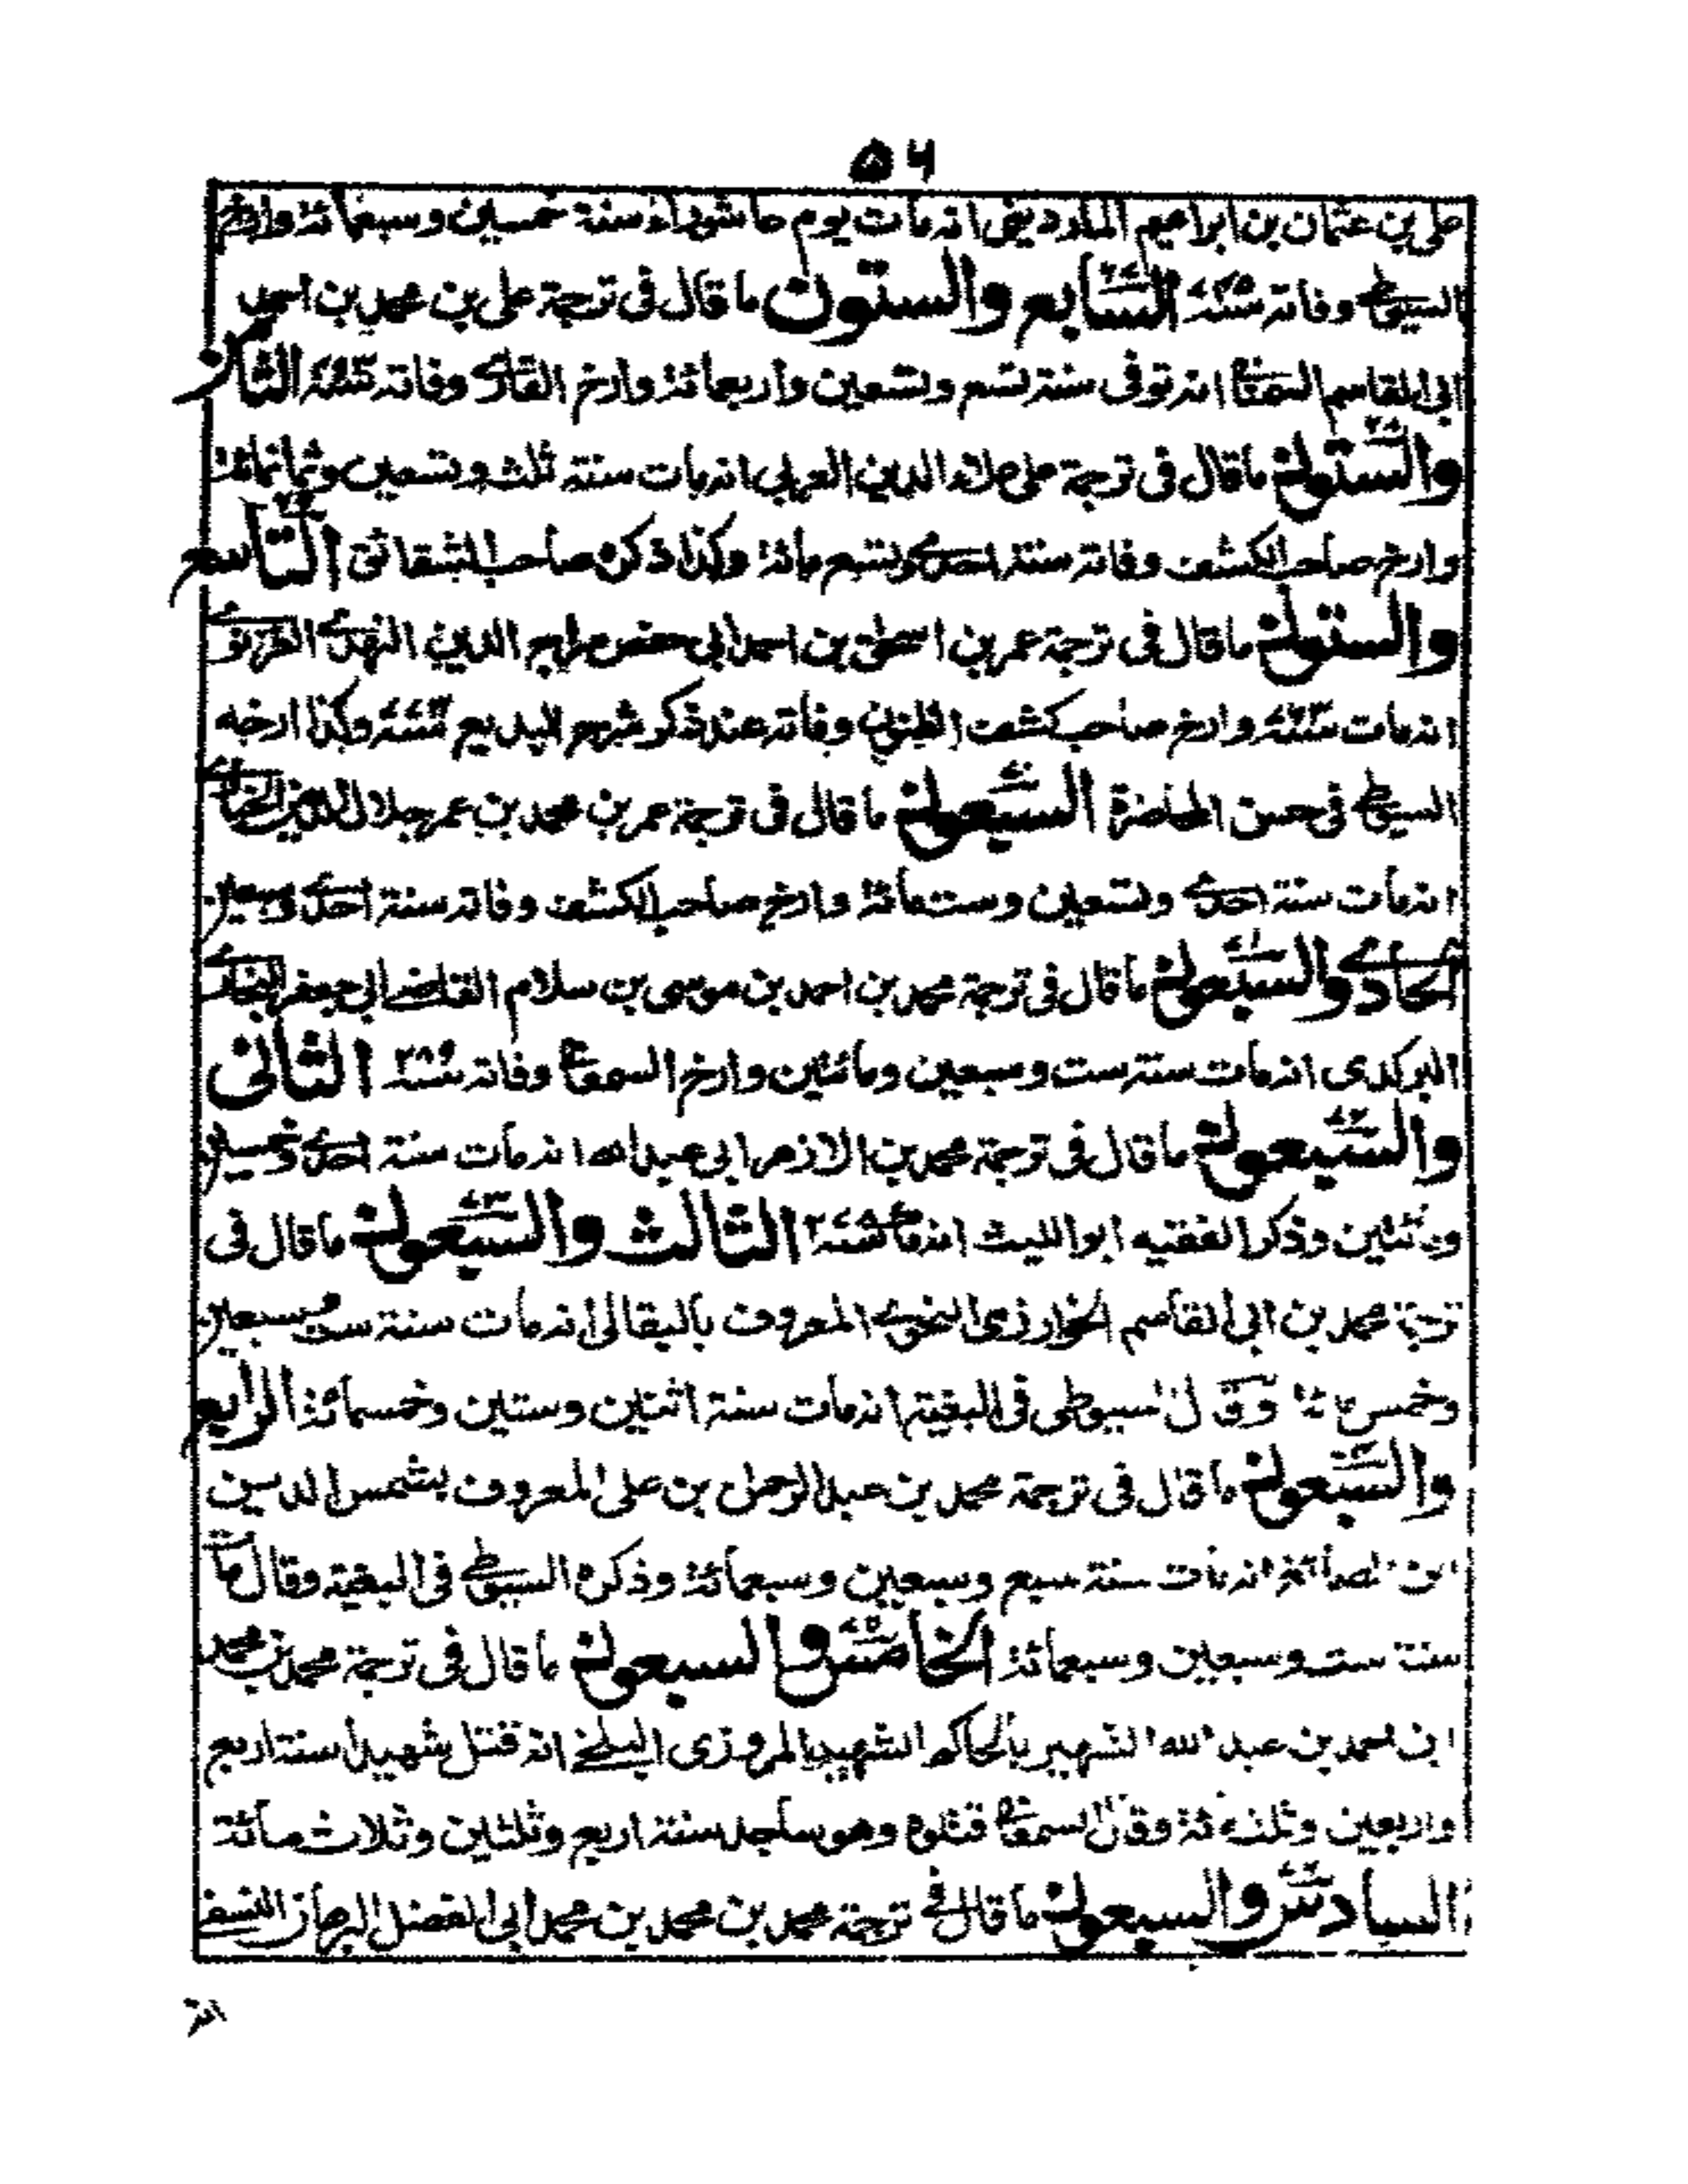 ۵۶
علی بن عثمان بن ابراهیم الماردینی انه مات یوم عاشوراء سنة خمسین وسبعمائة وارخ
السیوطی وفاته السابع والستون ما قال فی ترجمة علی بن محمد بن احمد
ابی القاسم السمنانی انه توفی سنة تسع وتسعین واربعمائة وارخ القاری وفاته الثامن
والستون ما قال فی ترجمة علی علاء الدین العربی انه مات سنة ثلث وتسعین وثمانمائة
وارخ صاحب الکشف وفاته سنة احدی وتسع مائة وکذا ذکره صاحب الشقائق التاسع
والستون ما قال فی ترجمة عمر بن اسحق بن احمد ابی حفص سراج الدین الهندی الغزنوی
انه مات وارخ صاحب کشف الظنون وفاته عند ذکر شرح البدیع وکذا ارخه
السیوطی فی حسن المحاضرة السبعون ما قال فی ترجمة عمر بن محمد بن عمر جلال الدین الخبازی
انه مات سنة احدی وتسعین وست مائة وارخ صاحب الکشف وفاته سنة احدی وسبعین
الحادی والسبعون ما قال فی ترجمة محمد بن احمد بن موسی بن سلام القاضی ابی جعفر البخاری
البرکدی انه مات سنة ست وسبعین ومائتین وارخ السمعانی وفاته الثانی
والسبعون ما قال فی ترجمة محمد بن الازهر ابی عبد الله انه مات سنة احدی وخمسین
ومائتین وذکر الفقیه ابو اللیث انه مات الثالث والسبعون ما قال فی
ترجمة محمد بن ابی القاسم الخوارزمی النحوی المعروف بالبقالی انه مات سنة ست وسبعین
وخمس مائة وقال السیوطی فی البغیة انه مات سنة اثنتین وستین وخمسمائة الرابع
والسبعون ما قال فی ترجمة محمد بن عبد الرحمن بن علی المعروف بشمس الدین
ابن الصائغ انه مات سنة سبع وسبعین وسبعمائة وذکره السیوطی فی البغیة وقال مات
سنة ست وسبعین وسبعمائة الخامس والسبعون ما قال فی ترجمة محمد بن محمد
ابن احمد بن عبد الله الشهیر بالحاکم الشهید المروزی البلخی انه قتل شهیدا سنة اربع
واربعین وثلث مائة وقال السمعانی قتلوه وهو ساجد سنة اربع وثلثین وثلاث مائة
السادس والسبعون ما قال فی ترجمة محمد بن محمد بن محمد ابی الفضل البرهان النسفی
انه